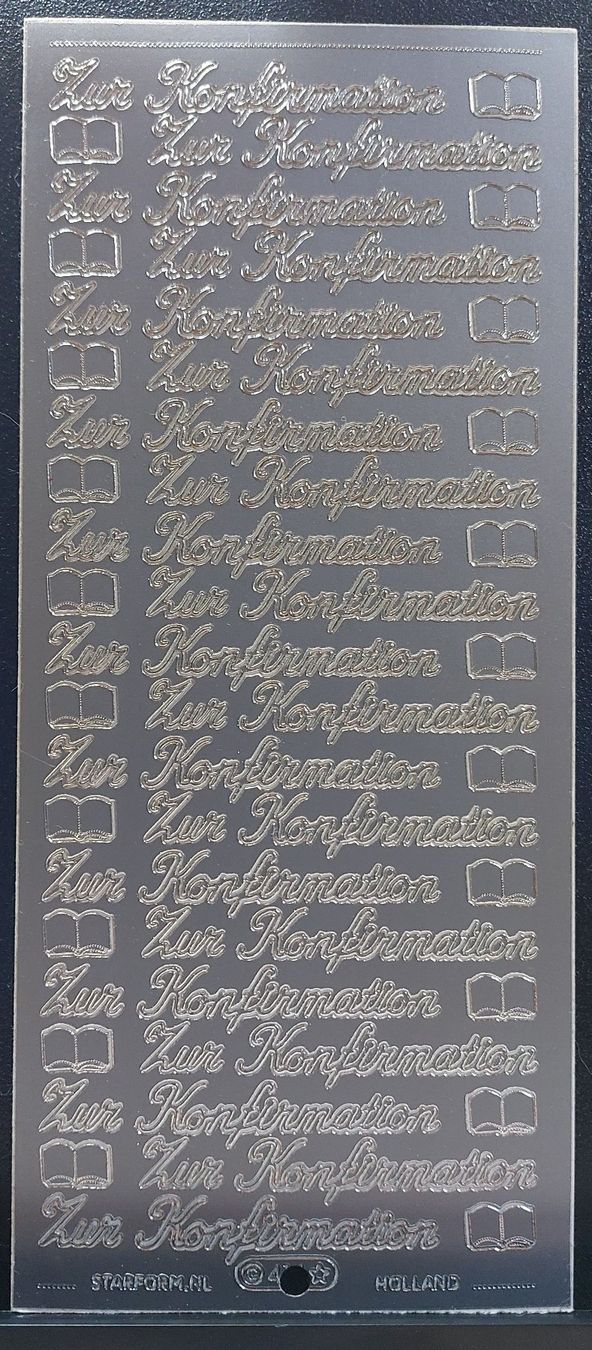 Zur Konfirmation
Zur Konfirmation
Zur Konfirmation
Zur Konfirmation
Zur Konfirmation
Zur Konfirmation
Zur Konfirmation
Zur Konfirmation
Zur Konfirmation
Zur Konfirmation
Zur Konfirmation
Zur Konfirmation
Zur Konfirmation
Zur Konfirmation
Zur Konfirmation
Zur Konfirmation
Zur Konfirmation
Zur Konfirmation
Zur Konfirmation
Zur Konfirmation
Zur Konfirmation
STARFORM.NL © HOLLAND